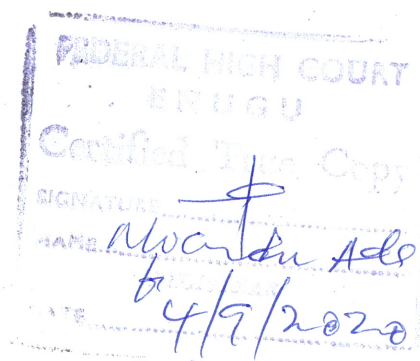 FEDERAL HIGH COURT
ENUGU
Certified True Copy
SIGNATURE
NAME
4/9/2020